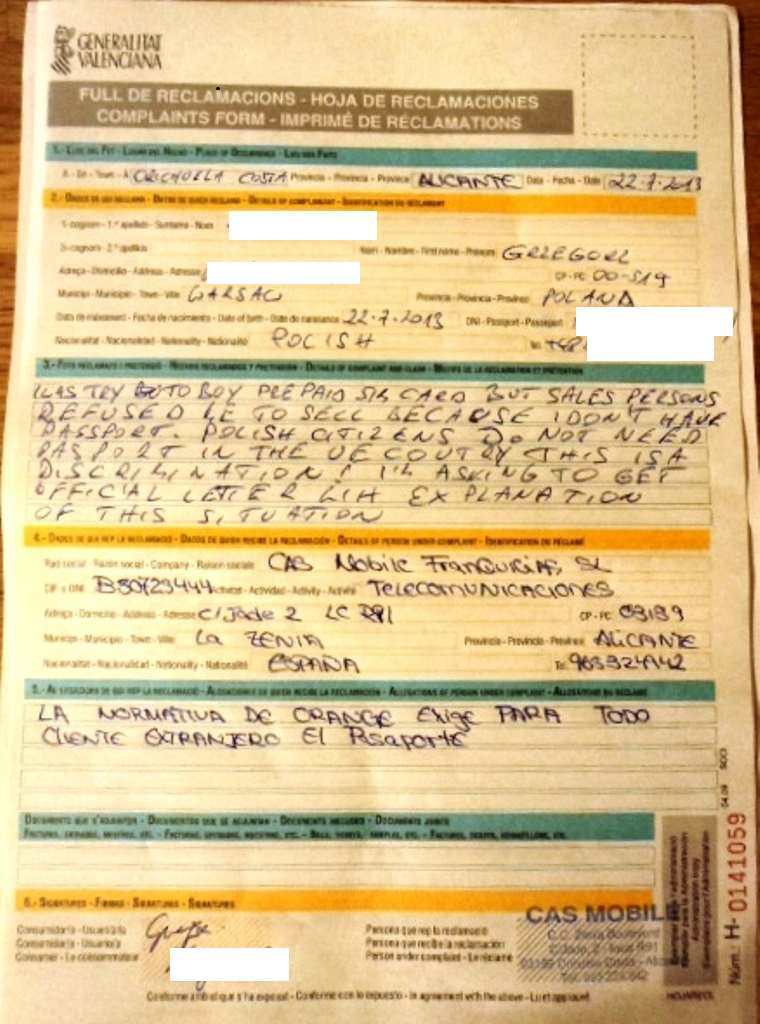 GENERALITAT
VALENCIANA
FULL DE RECLAMACIONS - HOJA DE RECLAMACIONES
COMPLAINTS FORM - IMPRIMÉ DE RÉCLAMATIONS
1.- LLOC DEL FET - LUGAR DEL HECHO - PLACE OF OCCURRENCE - LIEU DES FAITS
A - En - Town - À ORIHUELA COSTA Província - Provincia - Province ALICANTE Data - Fecha - Date 22.7.2013
2.- DADES DE QUI RECLAMA - DATOS DE QUIEN RECLAMA - DETAILS OF COMPLAINANT - IDENTIFICATION DU RÉCLAMANT
1r cognom - 1.er apellido - Surname - Nom
2n cognom - 2.º apellido Nom - Nombre - First name - Prénom GRZEGORZ
Adreça - Domicilio - Address - Adresse CP - PC 00-519
Municipi - Municipio - Town - Ville WARSAW Província - Provincia - Province POLAND
Data de naixement - Fecha de nacimiento - Date of birth - Date de naissance 22.7.2013 DNI - Passport - Passeport
Nacionalitat - Nacionalidad - Nationality - Nationalité POLISH Tel.
3.- FETS RECLAMATS I PRETENSIÓ - HECHOS RECLAMADOS Y PRETENSIÓN - DETAILS OF COMPLAINT AND CLAIM - MOTIFS DE LA RÉCLAMATION ET PRÉTENTION
I WAS TRY TO BUY PREPAID SIM CARD BUT SALES PERSONS
REFUSED ME TO SELL BECAUSE I DON'T HAVE
PASSPORT. POLISH CITIZENS DO NOT NEED
PASPORT IN THE UE COUTRY THIS IS A
DISCRIMINATION! I'M ASKING TO GET
OFFICIAL LETTER WIH EXPLANATION
OF THIS SITUATION
4.- DADES DE QUI REP LA RECLAMACIÓ - DATOS DE QUIEN RECIBE LA RECLAMACIÓN - DETAILS OF PERSON UNDER COMPLAINT - IDENTIFICATION DU RÉCLAMÉ
Raó social - Razón social - Company - Raison sociale CAS Mobile Franquicias, SL
CIF o DNI B30723444 Activitat - Actividad - Activity - Activité TELECOMUNICACIONES
Adreça - Domicilio - Address - Adresse C/ Jade 2 LC R91 CP - PC 03189
Municipi - Municipio - Town - Ville La ZENIA Província - Provincia - Province ALICANTE
Nacionalitat - Nacionalidad - Nationality - Nationalité ESPAÑA Tel.
5.- AL·LEGACIONS DE QUI REP LA RECLAMACIÓ - ALEGACIONES DE QUIEN RECIBE LA RECLAMACIÓN - ALLEGATIONS OF PERSON UNDER COMPLAINT - ALLÉGATIONS DU RÉCLAMÉ
LA NORMATIVA DE ORANGE Exige PARA TODO
CLIENTE EXTRANJERO El Pasaporte
DOCUMENTS QUE S'ADJUNTEN - DOCUMENTOS QUE SE ADJUNTAN - DOCUMENTS INCLUDED - DOCUMENTS JOINTS
6.- SIGNATURES - FIRMAS - SIGNATURES - SIGNATURES
Consumidor/a - Usuari/ària
Consumidor/a - Usuario/a
Consumer - Le consommateur
Persona que rep la reclamació
Persona que recibe la reclamación
Person under complaint - Le réclamé
CAS MOBILE
C.C. Zenia Boulevard
Conforme amb el que s'ha exposat - Conforme con lo expuesto - In agreement with the above - Lu et approuvé
Exemplar per a l'administració
Ejemplar para la Administración
Administration copy
Exemplaire pour l'Administration
Núm.: H- 0141059